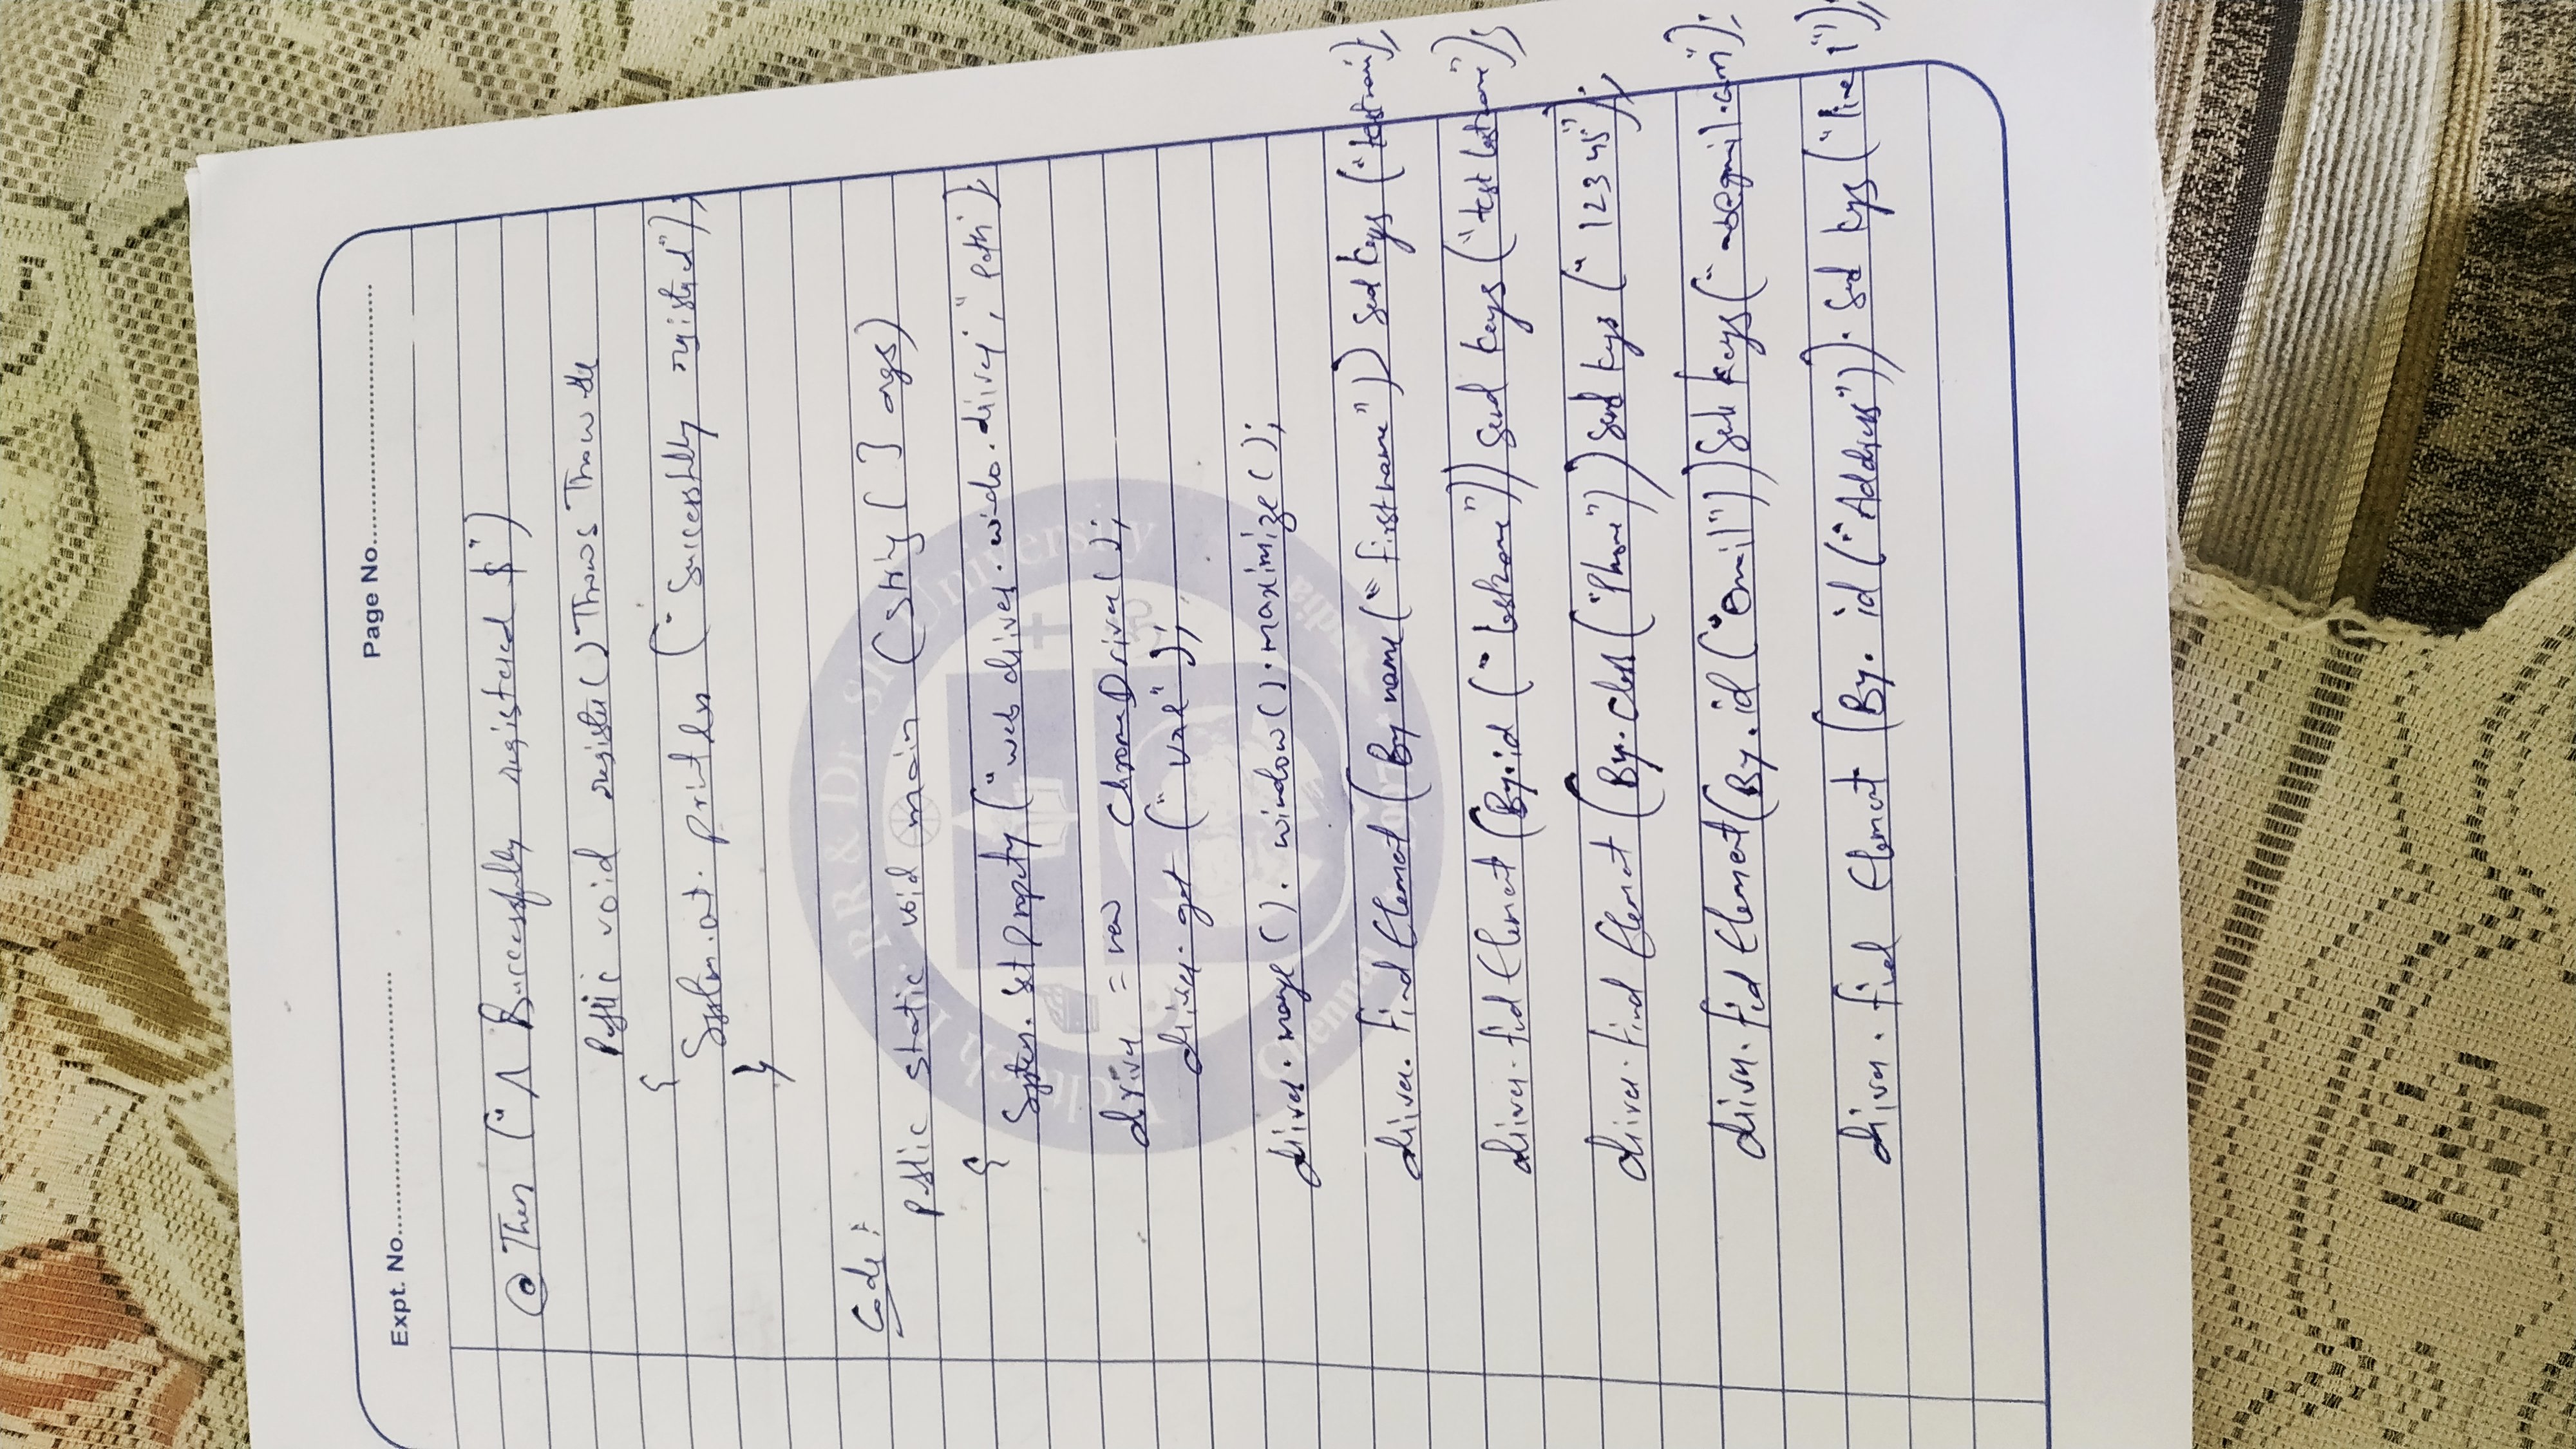 Expt. No.
Page No.
@ Then ("^ Successfully registered $")
Public void register() Throws Throwable
{
System.out.println ("Successfully registered");
}
Code:
Public static void main (String [ ] args)
{
System.setproperty ("web driver.windo.driver", "path");
driver = new ChromeDriver();
driver.get ("url");
driver.manage().window().maximize();
driver.find Element (By name ("firstname")) Send Keys (
driver.find Element (By.id ("lastname")) Send keys ("test lastname");
driver.find Element (By.class ("Phone")) Send keys ("12345");
driver.find Element (By.id ("Email")) Send keys ("
driver.find Element (By.id ("Address")).Send keys ("line 1");
RR & Dr. S
Universi
Chennai
India